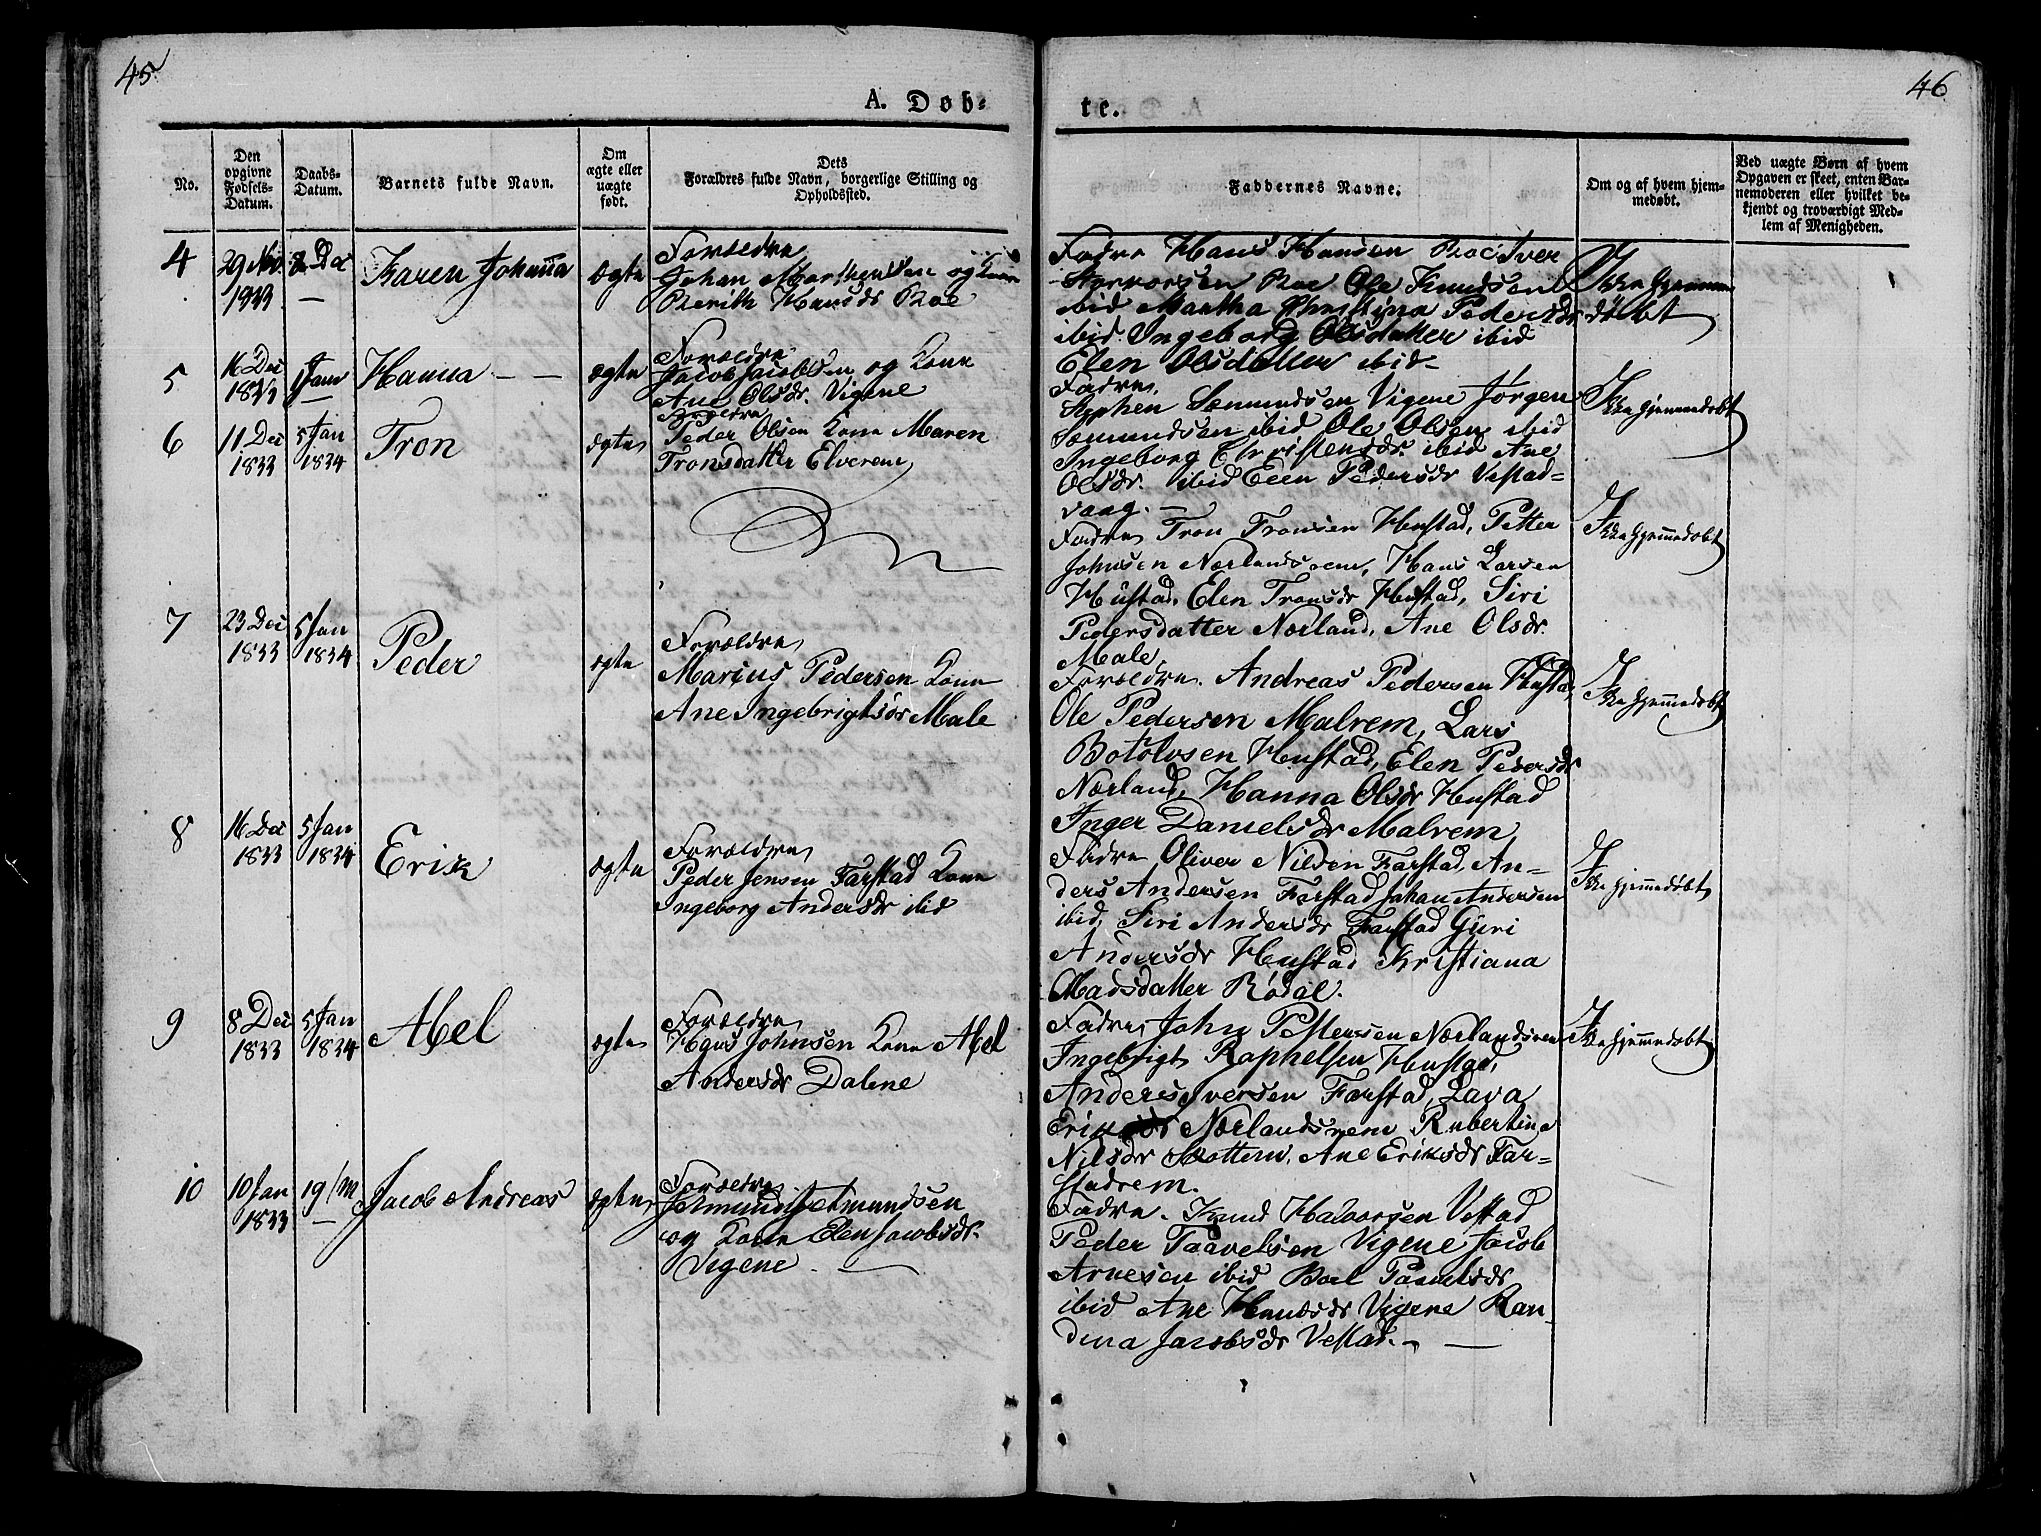 45.
46
A. Døb-
te.
No.
Den opgivne Fødsels-Datum.
Daabs-Datum.
Barnets fulde Navn.
Om ægte eller uægte født.
Dets Forældres fulde Navn, borgerlige Stilling og Opholdssted.
Faddernes Navne.
Om og af hvem hjemmedøbt.
Ved uægte Børn af hvem Opgaven er skeet, enten Barnemoderen eller hvilket bekjendt og troværdigt Medlem af Menigheden.
4
29 Nov
Dec
Karen Johanna
ægte
Forældre
Johan og Kone
Berith Hansdr Roe
Fadre Hans Hansen Roe Iver
Roe Ole Knudsen
ibid Martha Christina Pedersdr
ibid Ingeborg Olsdatter ibid
Elen Olsdatter ibid
Ikke hjemme
døbt
5
16 Dec
1833
1 Jan
Hanna
ægte
Forældre
Jacob Jacobsen og Kone
Ane Olsdr. Vigene
Fadre
Stephen Sæmundsen Vigene Jørgen
Sæmundsen ibid Ole Olsen ibid
Ingeborg Christensdr. ibid Ane
Olsdr. ibid Elen Pedersdr Vestad-
vaag.
Ikke hjemmedøbt
6
11 Dec
1833
5 Jan
1834
Tron
ægte
Forældre
Peder Olsen Kone Maren
Tronsdatter Elverem
Fadre Tron Tronsen Hustad, Petter
Johnsen Nærlandsrem, Hans Larsen
Hustad, Elen Tronsdr Hustad, Siri
Pedersdatter Nærland, Ane Olsdr.
Male
Ikke hjemmedøbt
7
23 Dec
1833
5 Jan
1834
Peder
ægte
Forældre
Marius Pedersen Kone
Ane Ingebrigtsdr Male
Forældre. Andreas Pedersen Hustad,
Ole Pedersen Malrem, Lars
Botolvsen Hustad, Elen Pedersdr
Nærland, Hanna Olsdr Hustad
Inger Danielsdr Malrem
Ikke hjemmedøbt
8
16 Dec
1833
5 Jan
1834
Erik
ægte
Forældre
Peder Jensen Farstad Kone
Ingeborg Andersdr ibid
Fadre Oliver Nilsen Farstad, An-
ders Andersen Farstad Johan Andersen
ibid, Siri Andersdr Farstad Guri
Andersdr Hustad Kristiana
Madsdatter Rødal.
Ikke hjemmedøbt
9
8 Dec
1833
5 Jan
1834
Abel
ægte
Forældre
Hans Johnsen Kone Abel
Andersdr Dalene
Fadre, John Pettersen Nærlandsrem
Ingebrigt Raphelsen Hustad,
Anders Iversen Farstad, Lava
Eriksdr Nærlandsrem Rubertina
Nilsdr Skottem, Ane Eriksdr Far-
stadrem.
Ikke hjemmedøbt
10
10 Jan
1833
19
Jacob Andreas
ægte
Forældre
og Kone Elen Jacobsdr.
Vigene
Fadre. Knud Halvorsen Vestad
Peder Paavelsen Vigene Jacob
Arnesen ibid Boel Paavelsdr
ibid Ane Hansdr Vigene Ran-
dina Jacobsdr Vestad.